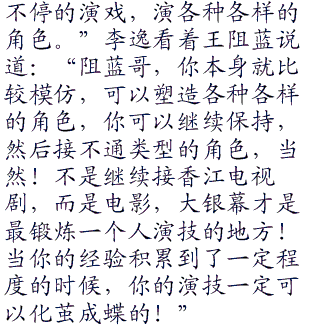 不停的演戏，演各种各样的
角色。”李逸看着王阻蓝说
道：“阻蓝哥，你本身就比
较模仿，可以塑造各种各样
的角色，你可以继续保持，
然后接不通类型的角色，当
然！不是继续接香江电视
剧，而是电影，大银幕才是
最锻炼一个人演技的地方！
当你的经验积累到了一定程
度的时候，你的演技一定可
以化茧成蝶的！”